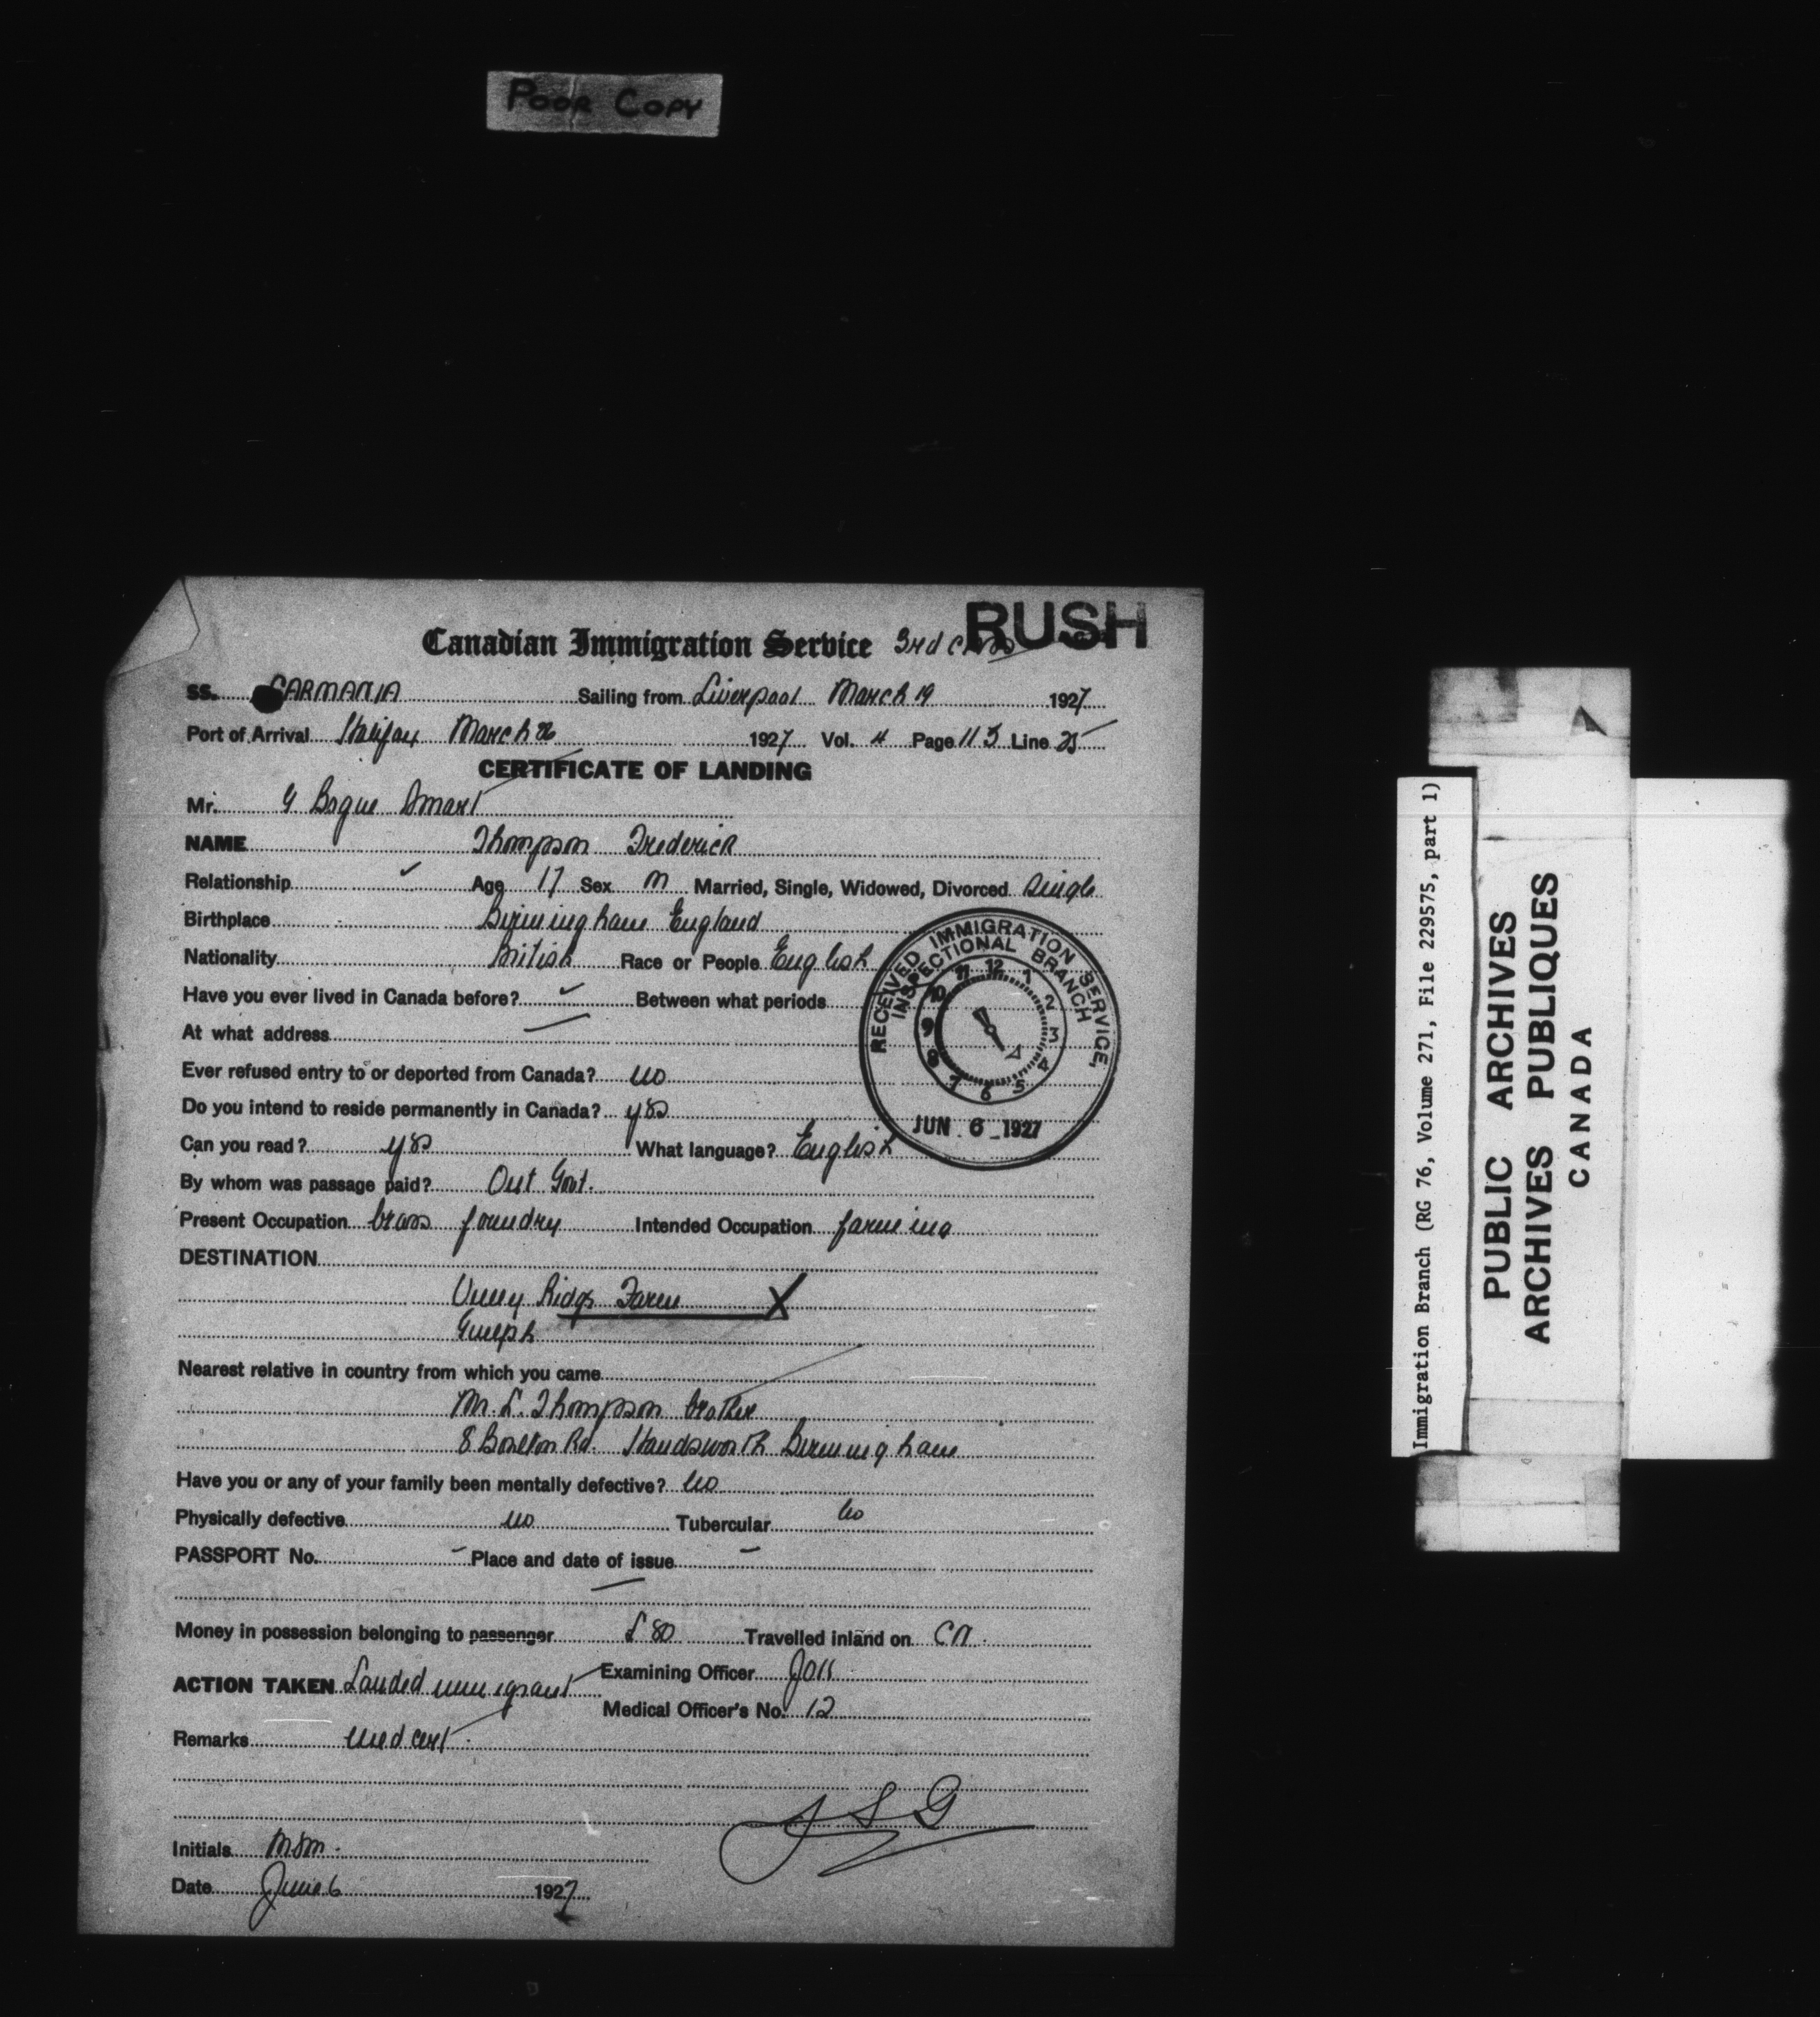 POOR COPY
RUSH
Canadian Immigration Service 3rd class
SS. CARMANIA Sailing from Liverpool March 19 1927
Port of Arrival Halifax March 26 1927 Vol. 4 Page 113 Line 25
CERTIFICATE OF LANDING
Mr. G Bogue Smart
NAME Thompson Frederick
Relationship Age 17 Sex M Married, Single, Widowed, Divorced Single
Birthplace Birmingham England
Nationality British Race or People English
Have you ever lived in Canada before? Between what periods
At what address
Ever refused entry to or deported from Canada? no
Do you intend to reside permanently in Canada? yes
Can you read? yes What language? English
By whom was passage paid? Ont Govt.
Present Occupation brass foundry Intended Occupation farming
DESTINATION
Vimy Ridge Farm X
Guelph
Nearest relative in country from which you came
Mr. L. Thompson brother
8 Boulton Rd. Handsworth Birmingham
Have you or any of your family been mentally defective? no
Physically defective no Tubercular no
PASSPORT No. - Place and date of issue -
Money in possession belonging to passenger £80 Travelled inland on CN.
ACTION TAKEN Landed immigrant Examining Officer
Medical Officer's No. 12
Remarks med cert.
Initials
Date June 6 1927
RECEIVED IMMIGRATION SERVICE,
INSPECTIONAL BRANCH
12 1 2 3 4 5 6 7 8 9 10 11
JUN 6 - 1927
Immigration Branch (RG 76, Volume 271, File 229575, part 1)
PUBLIC ARCHIVES
ARCHIVES PUBLIQUES
CANADA